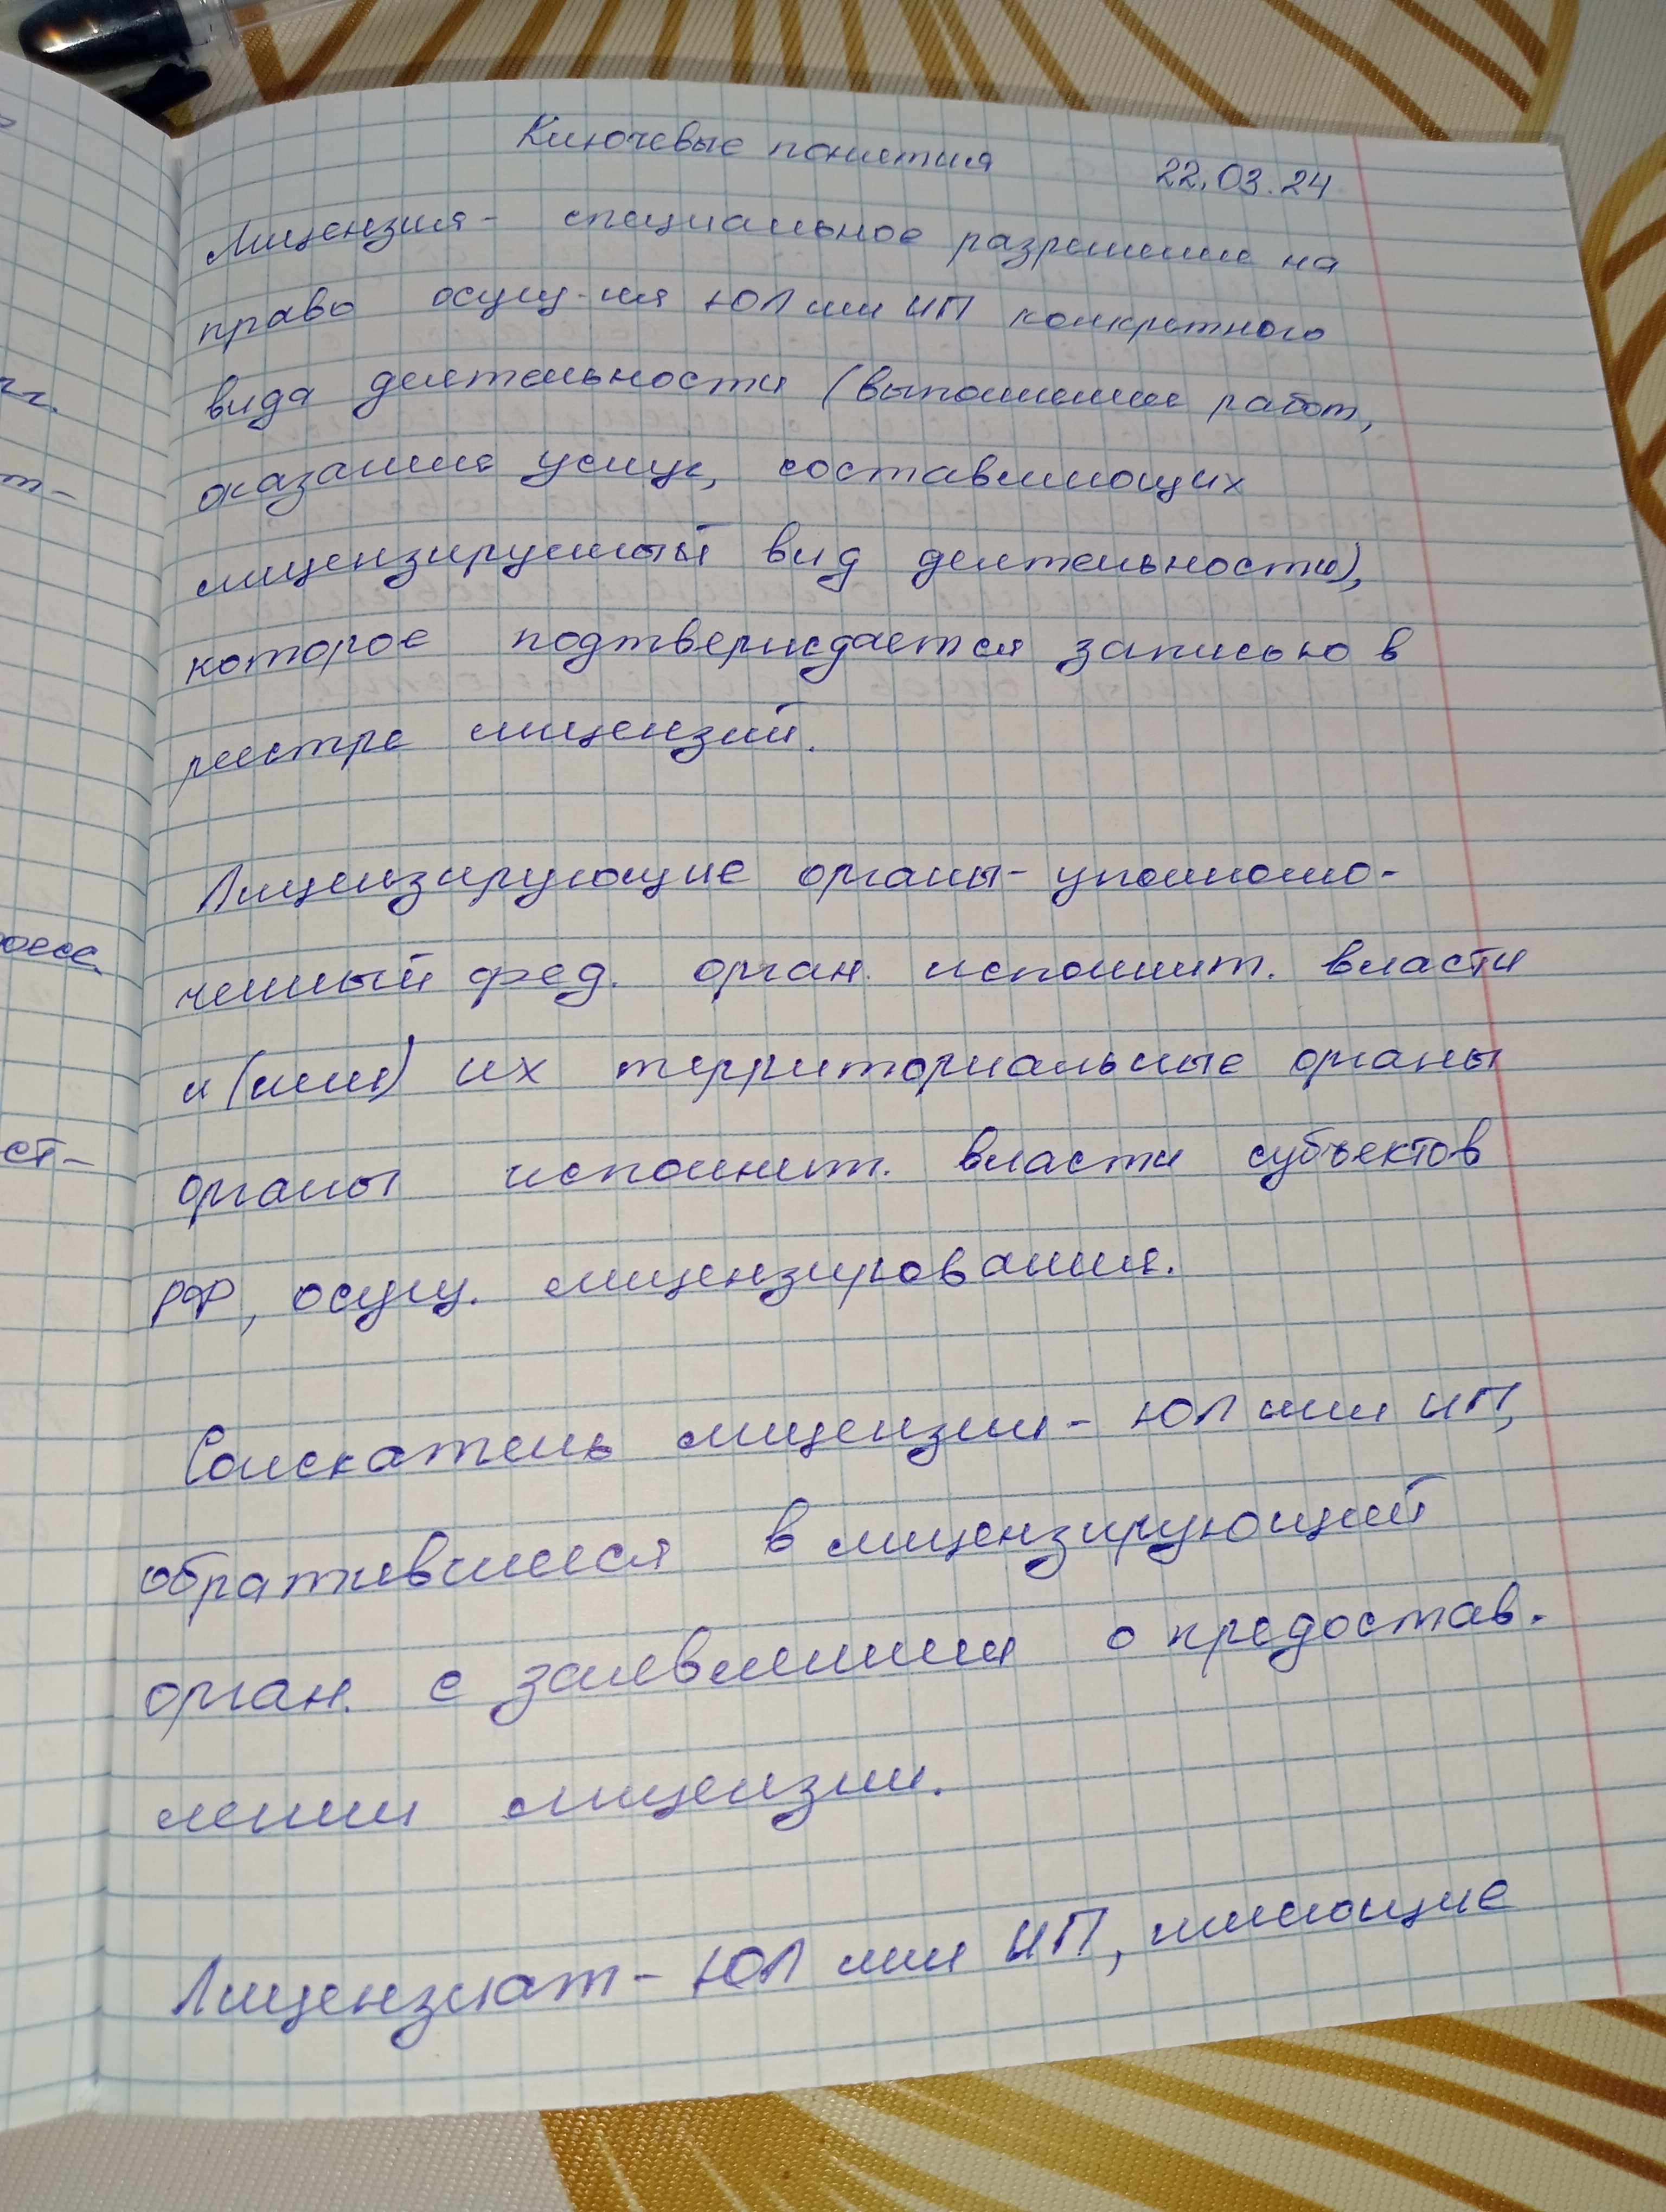 Ключевые понятия 22.03.24
Лицензия - специальное разрешение на
право осущ-ия ЮЛ или ИП конкретного
вида деятельности (выполнение работ,
оказание услуг, составляющих
лицензируемый вид деятельности),
которое подтверждается записью в
реестре лицензий.
Лицензирующие органы - уполномо-
ченный фед. орган. исполнит. власти
и (или) их территориальные органы
органы исполнит. власти субъектов
РФ, осущ. лицензирования.
Соискатель лицензии - ЮЛ или ИП,
обратившиеся в лицензирующий
орган. с заявлением о предостав.
лении лицензии.
Лицензиат - ЮЛ или ИП, имеющие